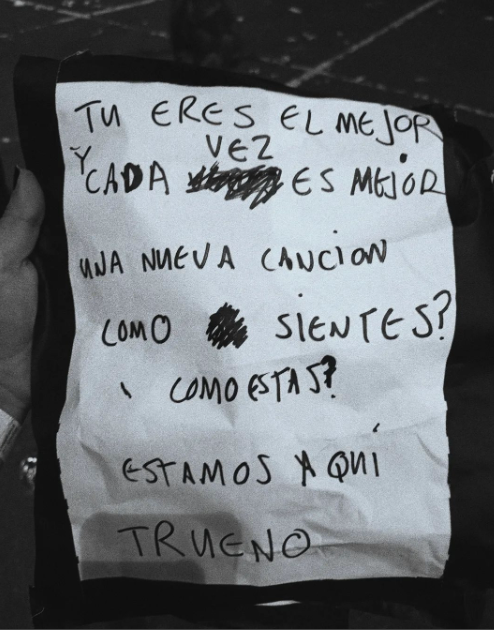 TU ERES EL MEJOR
VEZ
Y CADA ES MEJOR
UNA NUEVA CANCION
COMO SIENTES?
COMO ESTAS?
ESTAMOS AQUÍ
TRUENO